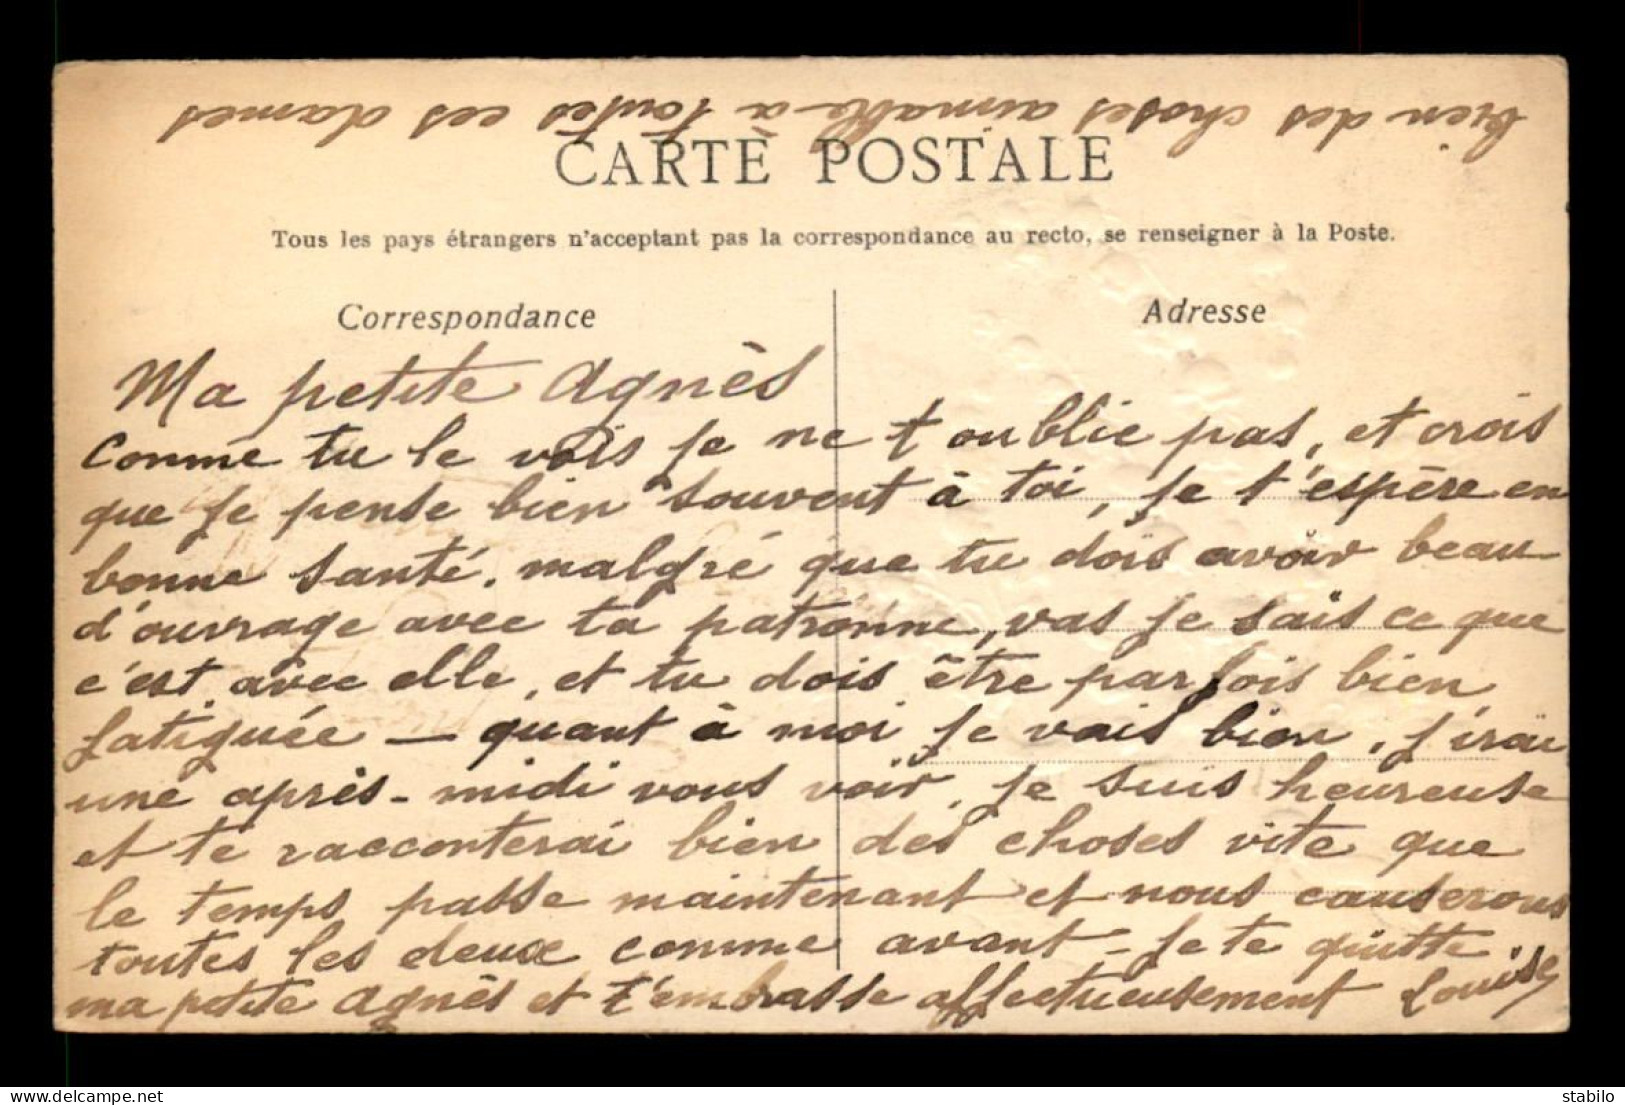 bien des choses aimable à toutes ces dames
CARTE POSTALE
Tous les pays étrangers n'acceptant pas la correspondance au recto, se renseigner à la Poste.
Correspondance
Adresse
Ma petite Agnès
Comme tu le vois je ne t oublie pas, et crois
que je pense bien souvent à toi, je t'espère en
bonne santé. malgré que tu dois avoir beau
d'ouvrage avec ta patronne, vas je sais ce que
c'est avec elle, et tu dois être parfois bien
fatiguée — quant à moi je vais bien, j'irai
une après-midi vous voir, je suis heureuse
et te racconterai bien des choses vite que
le temps passe maintenant et nous causerons
toutes les deux comme avant - je te quitte
ma petite Agnès et t'embrasse affectueusement Louise
delcampe.net
stabilo